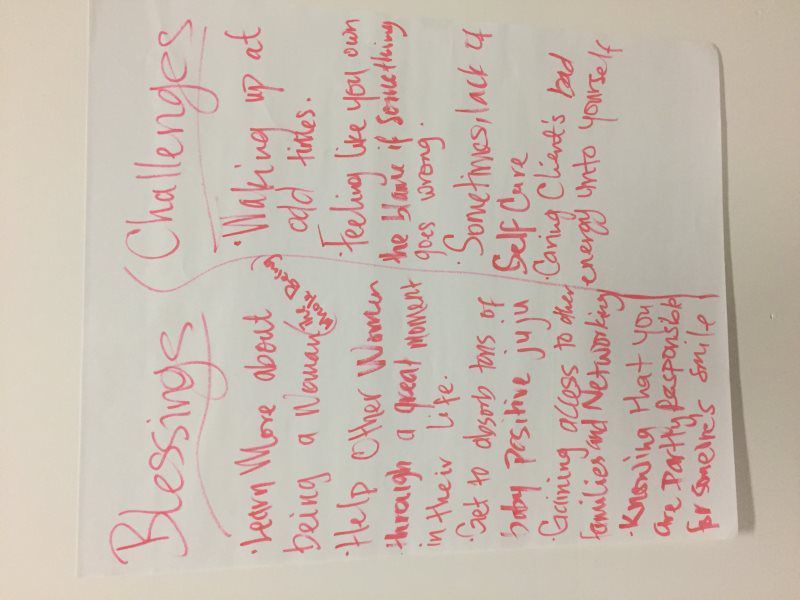 Blessings
· Learn More about
being a Woman (the
whole Being)
· Help Other Women
through a great moment
in their life.
· Get to absorb tons of
baby positive juju
· Gaining access to other
families and Networking
· Knowing that you
are partly Responsible
for someones smile
Challenges
· Waking up at
odd times.
· Feeling like you own
the blame if something
goes wrong.
· Sometimes, lack of
Self Care
Caring Client's bad
energy unto yourself